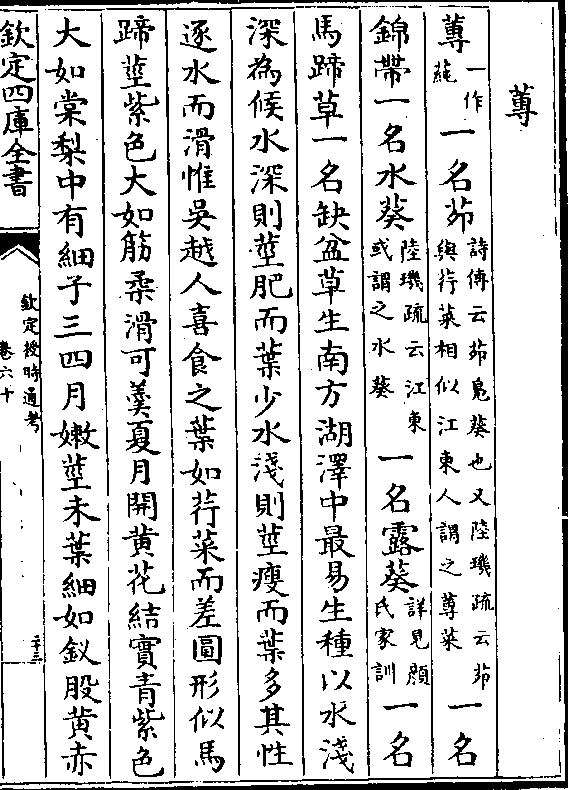 蓴
蓴一作蒓一名茆詩傳云茆鳬葵也又陸璣疏云茆與荇菜相似江東人謂之蓴菜一名
錦帶一名水葵陸璣疏云江東或謂之水葵一名露葵詳見顔氏家訓一名
馬蹄草一名缺盆草生南方湖澤中最易生種以水淺
深為候水深則莖肥而葉少水淺則莖瘦而葉多其性
逐水而滑惟吳越人喜食之葉如荇菜而差圓形似馬
蹄莖紫色大如筯柔滑可羮夏月開黄花結實青紫色
大如棠梨中有細子三四月嫩莖未葉細如釵股黄赤
欽定四庫全書
欽定授時通考
卷六十